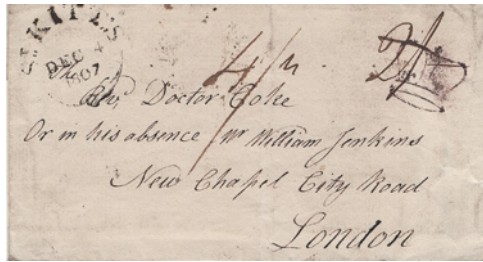 ST KITTS
DEC 4
1807
Revd Doctor Coke
Or in his absence Mr William Jenkins
New Chapel City Road
London